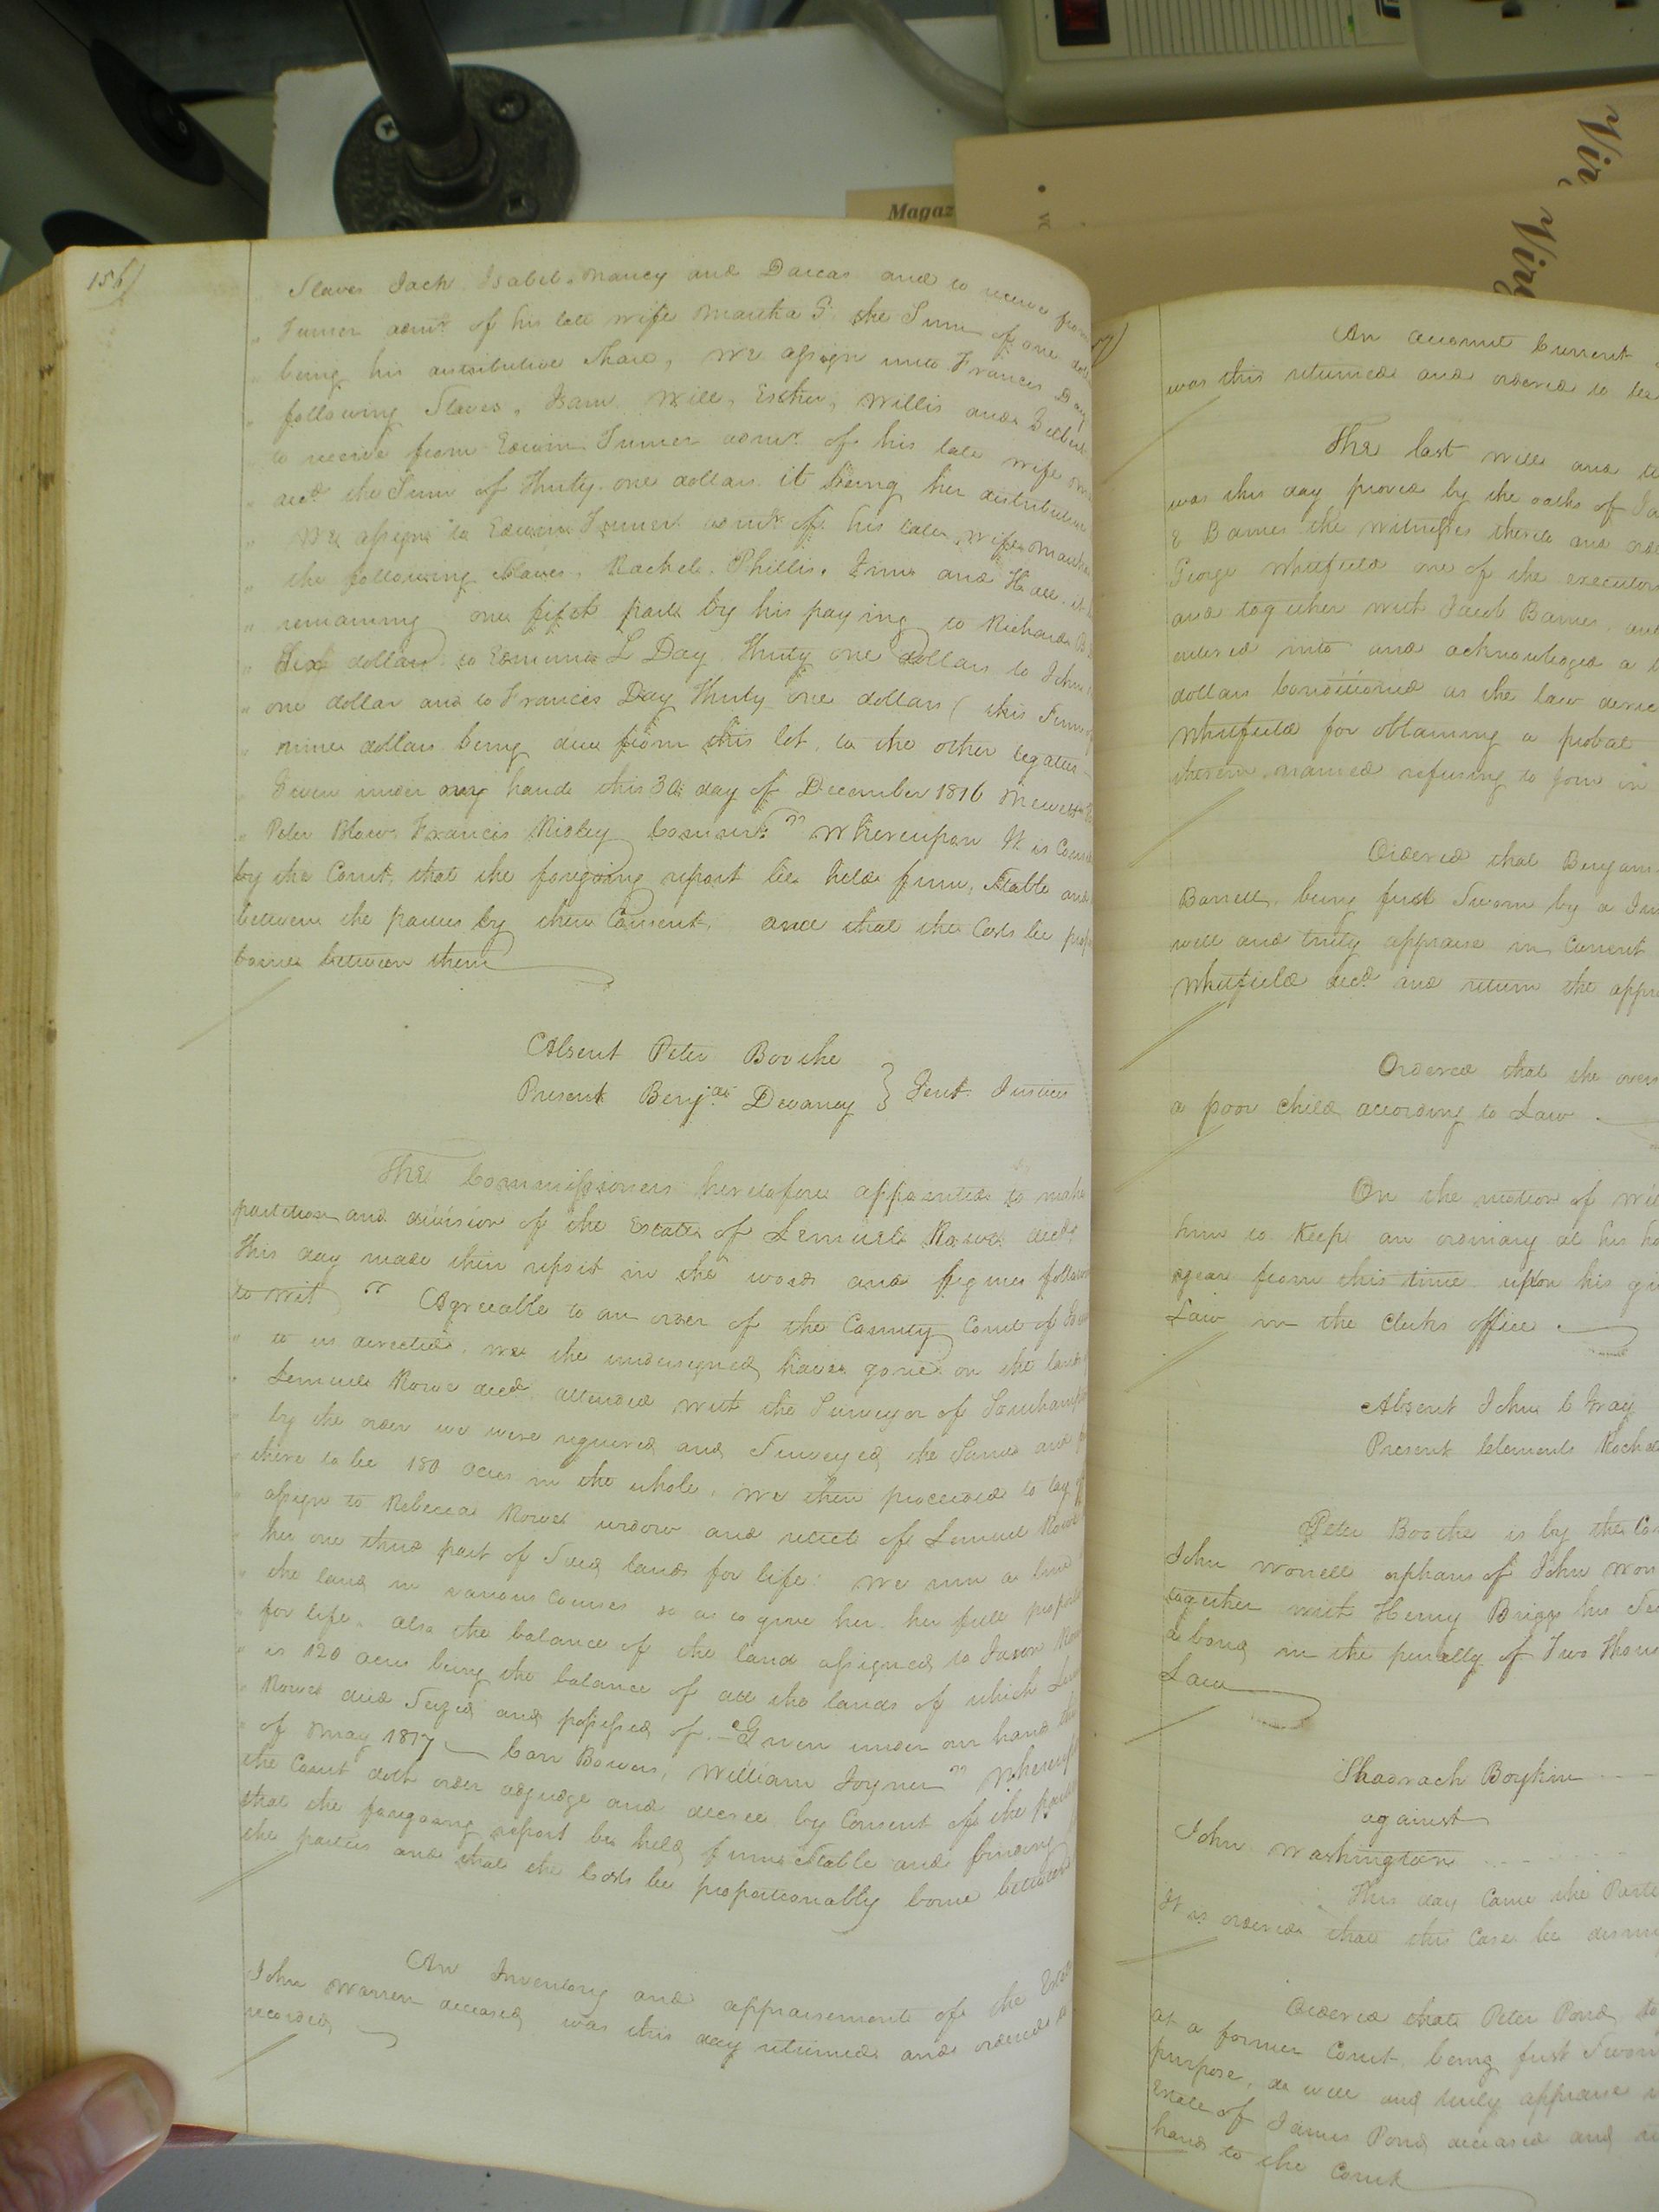 Vir
Vir
Magaz
156
" Slaves Jack, Isabel, Nancy and Darcas and to receive from
" Turner admr. of his late wife Martha G. the Sum of one doll
" being his distributive share, we assign unto Francis Day
" following Slaves, Sam, Will, Esther, Willis and
" to receive from Edwin Turner admr. of his late wife
" decd. the Sum of Thirty one dollars it being her distributive
" We assign to Edwin Turner admr. of his late wife Martha
" the following Slaves, Rachel, Phillis, and
" remaining one fifth part by his paying to Richard B
" Six dollars to Edmund L Day Thirty one dollars to John
" one dollar and to Francis Day Thirty one dollars ( this Sum of
" nine dollars being due from this lot, to the other legatees
" Given under my hand this 30 day of December 1816
" Peter Blow, Francis Ridley Commrs. " Whereupon It is
by the Court, that the foregoing report be held firm, Stable and
between the parties by their Consent, and that the Costs be
borne between them
Absent Peter Boothe
Present Benja. Devaney } Gent. Justices
The Commissioners heretofore appointed to make
partition and division of the Estate of Lemuel Rowe decd.
this day made their report in the words and figures follow
to wit " Agreeable to an order of the County Court of
" to us directed, we the undersigned have gone on the land
" Lemuel Rowe decd. attended with the Surveyor of Southampton
" by the order we were required and Surveyed the Same and
" there to be 180 acres in the whole, we then proceeded to lay off
" assign to Rebecca Rowe widow and relict of Lemuel Rowe
" her one third part of Said lands for life: We run a line
" the land in various Courses so as to give her her full
" for life, also the balance of the land assigned to Jason
" is 120 acres being the balance of all the lands of which
" Rowe died Seized and possessed of. Given under our hand
" of May 1817 Carr Bowers, William Joyner " Whereupon
the Court doth order adjudge and decree by Consent of the
that the foregoing report be held firm Stable and binding
the parties and that the Costs be proportionably borne between
An Inventory and appraisement of the Estate
John Warren deceased was this day returned and ordered
recorded
An account Current
was this returned and ordered to be
The last will and
was this day proved by the oaths of
& Barnes the witnesses thereto and
George Whitfield one of the executors
and together with Jacob Barnes and
entered into and acknowledged a
dollars Conditioned as the law
Whitfield for obtaining a probat
therein named refusing to join in
Ordered that
Barrett, being first Sworn by a
well and truly appraise in Current
Whitfield decd. and return the
Ordered that the
a poor child according to Law
On the motion of
him to keep an ordinary at his
year from this time upon his
Law in the Clerks office
Absent John C Gray
Present Clements
Peter Boothe is by the
John Worrell orphans of John
together with Henry Briggs his
a bond in the penalty of Two
Law
Shadrach Boykin
against
John Washington
This day Came the
It is ordered that this Case be
Ordered that Peter Pond,
at a former Court, being first
purpose, do well and truly appraise
Estate of James Pond deceased and
hands to the Court